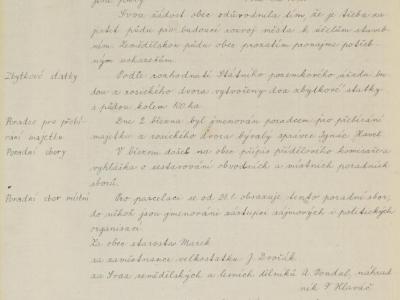 Svou žádost obec odůvodnila tím, že je třeba za-
jistit půdu pro budoucí rozvoj města k účelům staveb-
ním. Zemědělskou půdu obec prozatím pronajme potřeb-
ným uchazečům.
Zbytkové statky
Podle rozhodnutí Státního pozemkového úřadu bu-
dou z rosického dvora vytvořeny dva zbytkové statky
s půdou kolem 100 ha.
Poradce pro přebí-
rání majetku
Dne 2. března byl jmenován poradcem pro přebírání
majetku z rosického dvora bývalý správce Ignác Havel
Poradní sbory
V březnu došel na obec přípis přídělového komisaře a
vyhláška o sestavování obvodních a místních poradních
sborů.
Poradní sbor místní
Pro parcelaci se od 28.1. ustavuje tento poradní sbor,
do něhož jsou jmenováni zástupci zájmových i politických
organisací.
Za obec starosta Marek
za zaměstnance velkostatku J. Dvořák
za Svaz zemědělských a lesních dělníků A. Doudal, náhrad
ník F. Hlaváč